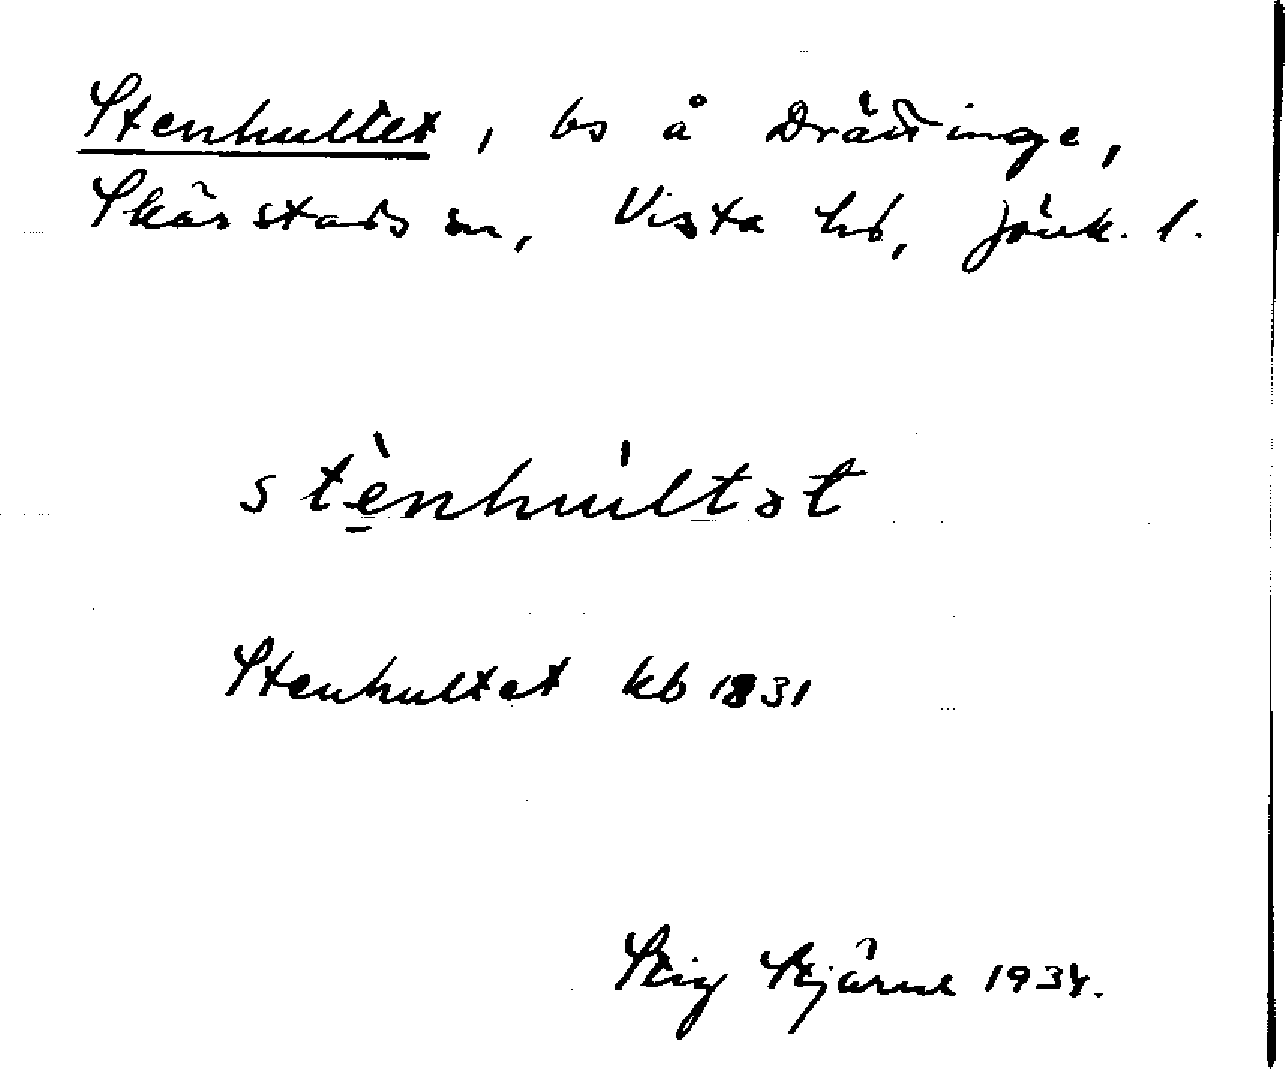 Stenhultet, bs å Drättinge,
Skärstads sn, Vista hd, Jönk. l.
stè̱nhu̍ltət
Stenhultet kb 1831
Stig Stjärne 1934.